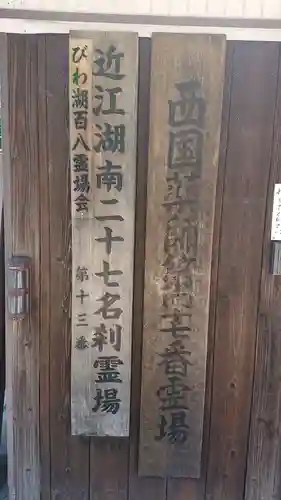 西国薬師第番霊場
近江湖南二十七名刹霊場
びわ湖百八霊場会 第十三番